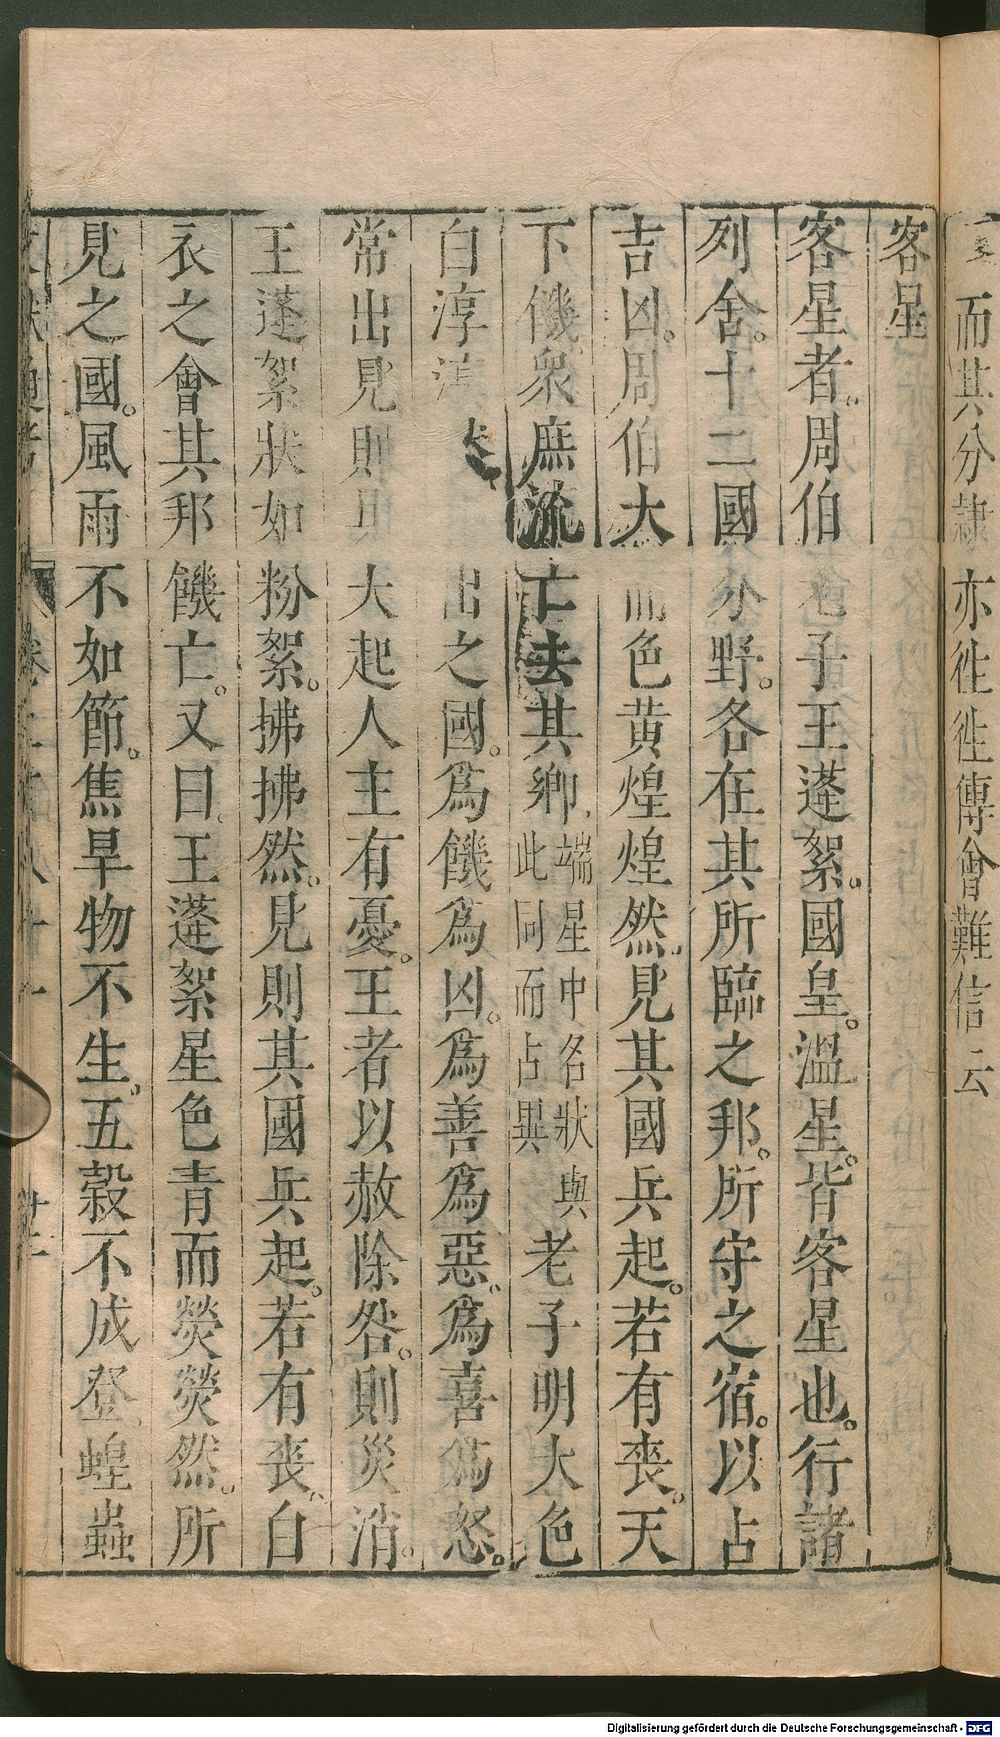 而其分隸亦往往傳會難信云
客星
客星者。周伯老子王蓬絮。國皇。溫星。皆客星也。行諸
列舍。十二國分野。各在其所臨之邦。所守之宿。以占
吉凶。周伯大而色黃煌煌然。見其國兵起。若有喪。天
下饑。衆庶流亡去其鄉。端星中名狀與此同而占異老子明大色
白淳淳出之國。爲饑爲凶。爲善爲惡。爲喜爲怒。
常出見則兵大起人主有憂。王者以赦除咎。則災消。
王蓬絮狀如粉絮。拂拂然。見則其國兵起。若有喪。白
衣之會其邦饑亡。又曰。王蓬絮星色青而熒熒然。所
見之國。風雨不如節。焦旱物不生。五穀不成登。蝗蟲
Digitalisierung gefördert durch die Deutsche Forschungsgemeinschaft - DFG